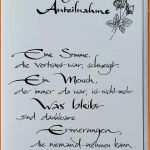 Anteilnahme
Eine Stimme,
die vertraut war, schweigt.
Ein Mensch,
der immer da war, ist nicht mehr
Was bleibt
sind dankbare
Erinnerungen
die niemand nehmen kann